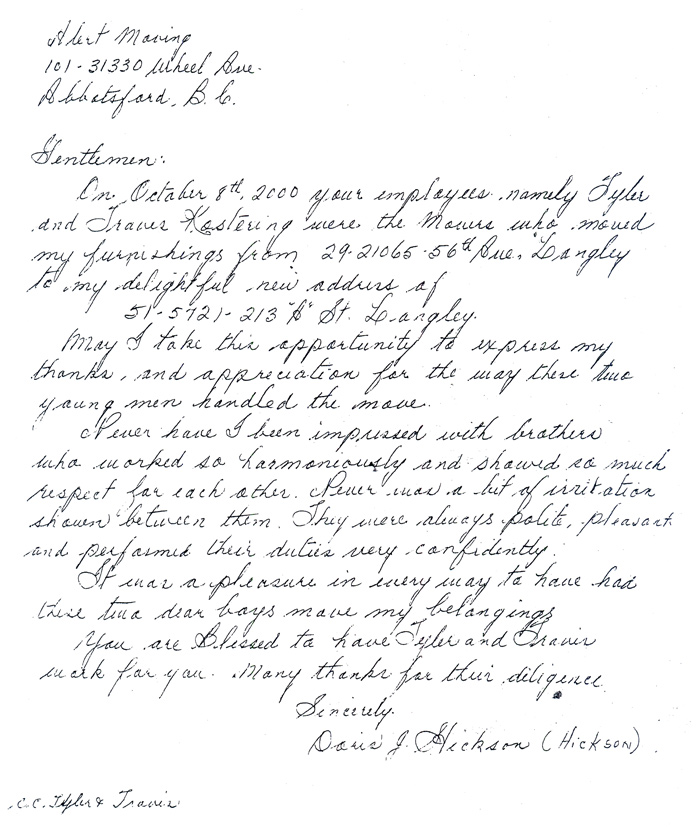 Alert Moving
101-31330 Wheel Ave.
Abbotsford, B.C.
Gentlemen:
On October 8th, 2000 your employees namely Tyler
and Travis Kostering were the Movers who moved
my furnishings from 29-21065-56th Ave. Langley
to my delightful new address of
51-5721-213 "A" St. Langley.
May I take this opportunity to express my
thanks, and appreciation for the way these two
young men handled the move.
Never have I been impressed with brothers
who worked so harmoniously and showed so much
respect for each other. Never was a bit of irritation
shown between them. They were always polite, pleasant
and performed their duties very confidently.
It was a pleasure in every way to have had
these two dear boys move my belongings
You are Blessed to have Tyler and Travis
work for you. Many thanks for their diligence.
Sincerely.
Doris J. Hickson (HICKSON).
C.C. Tyler & Travis